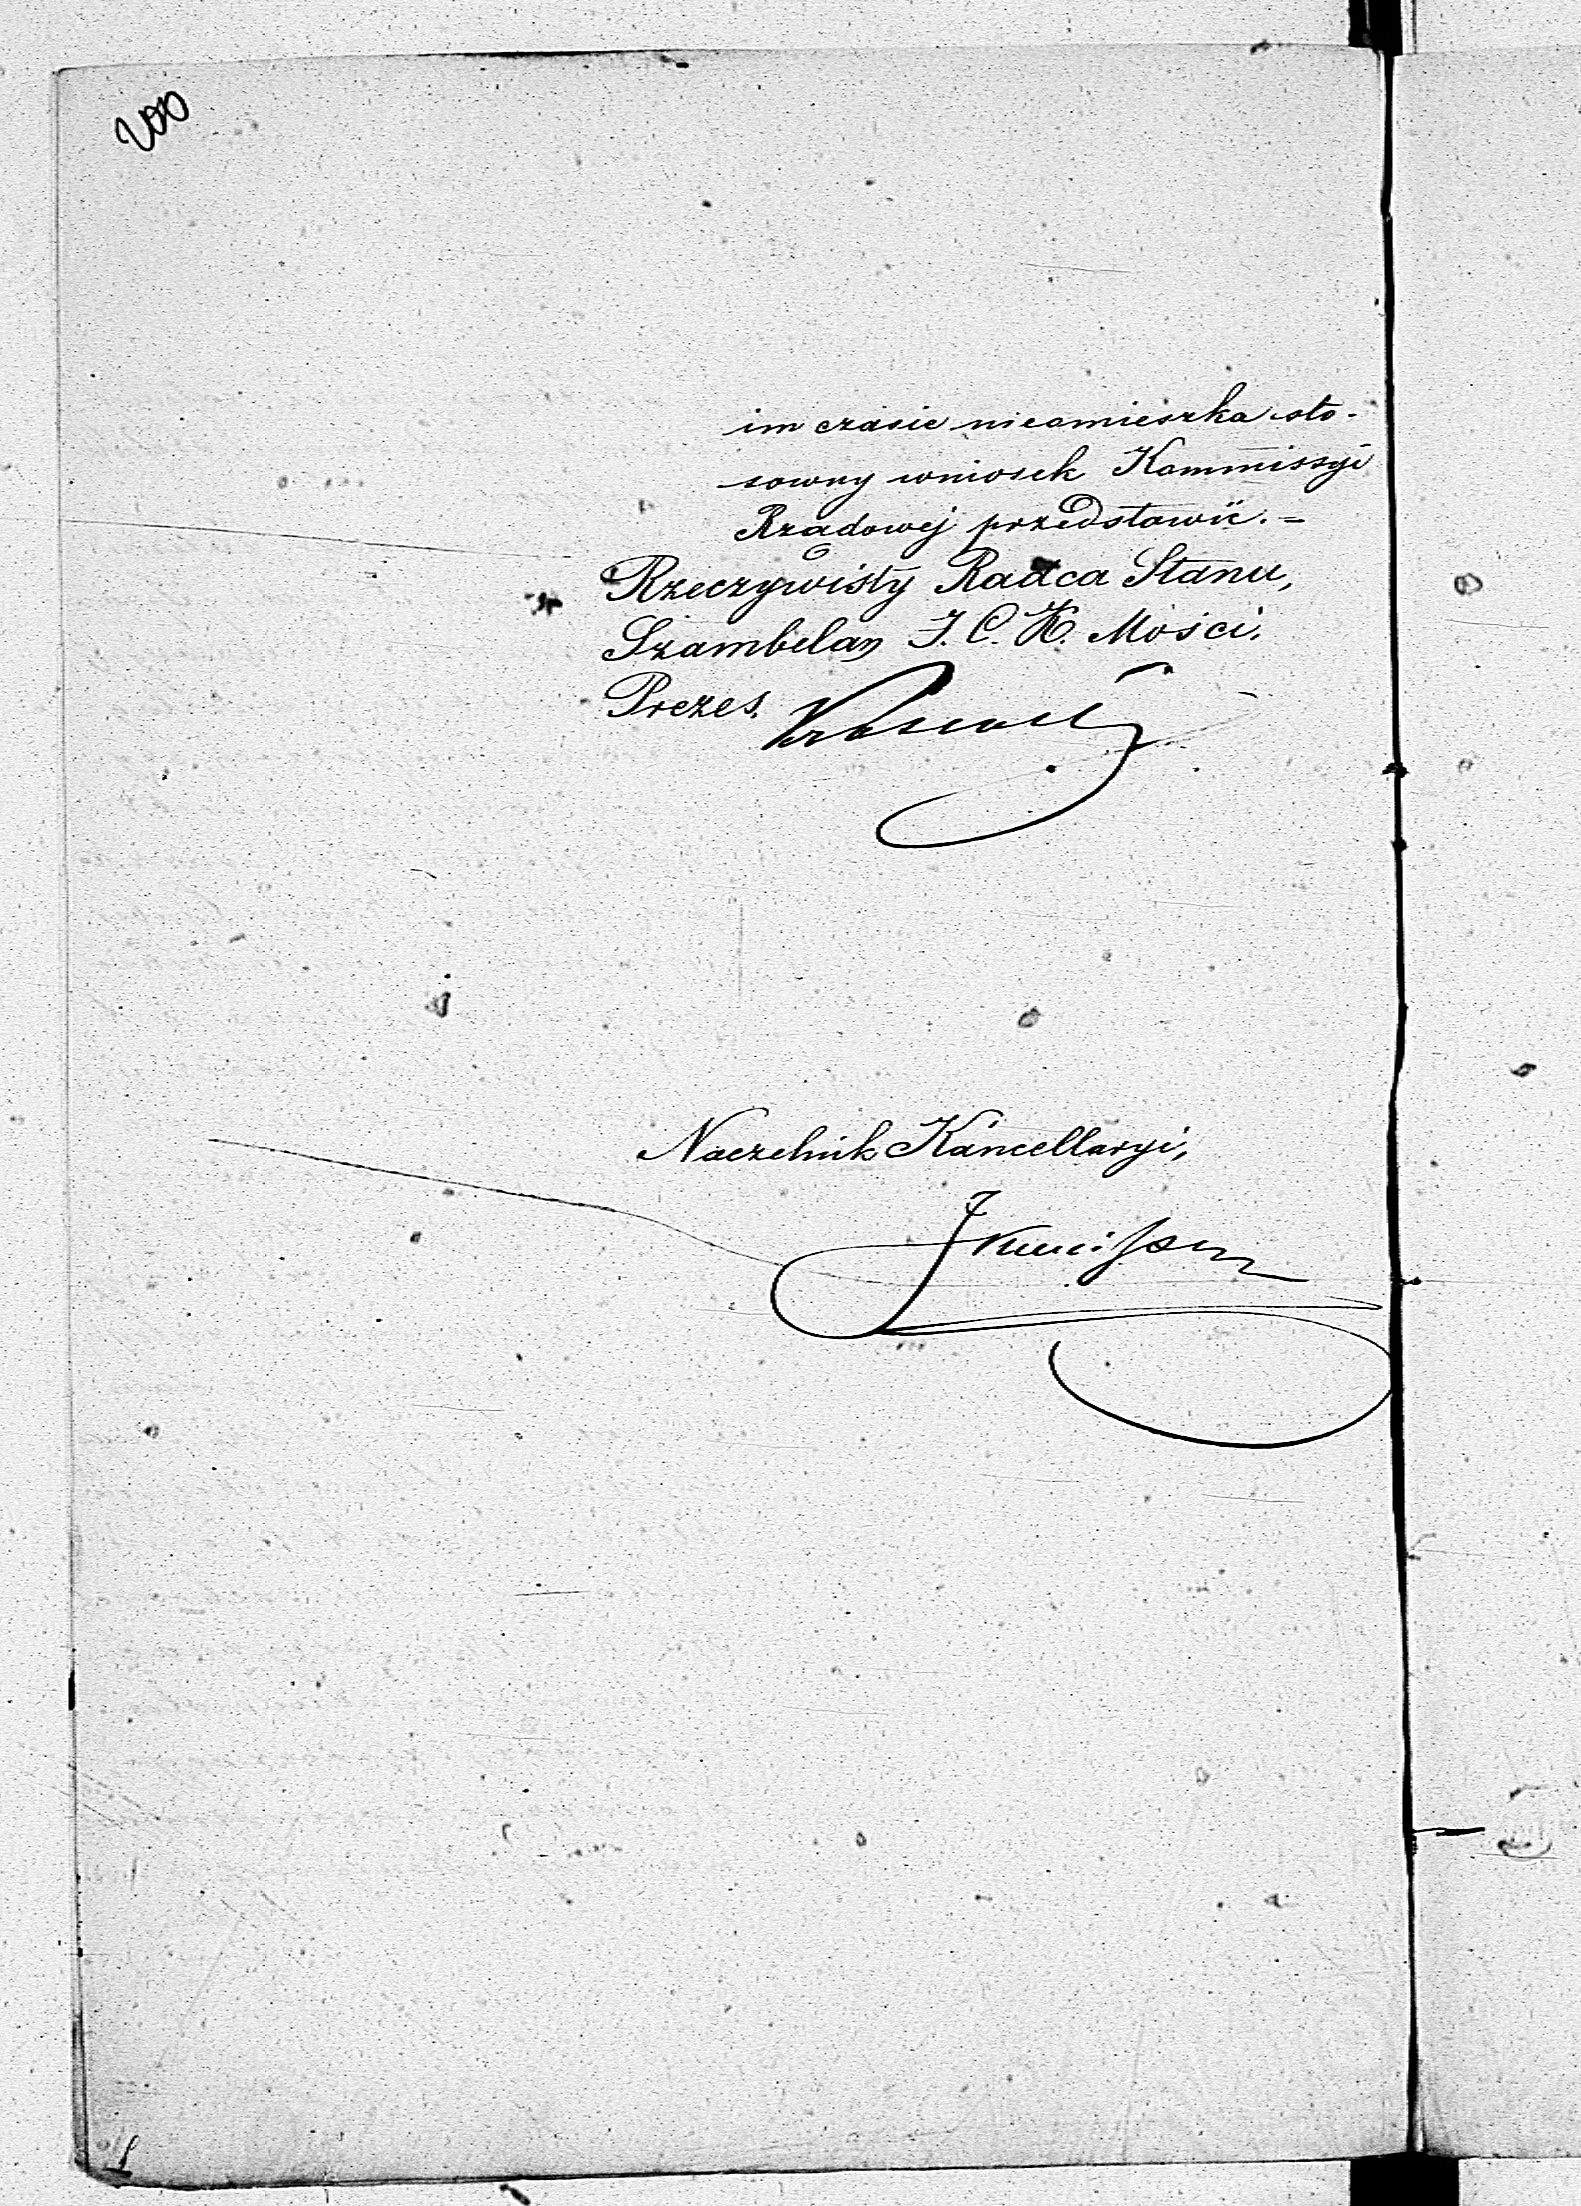 200
im czasie nieomieszka sto-
sowny wniosek Kommissyi
Rządowej przedstawić. =
Rzeczywisty Radca Stanu,
Szambelan J. C. K. Mości.
Prezes.
Naczelnik Kancellaryi,